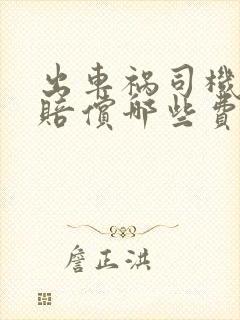 出車禍司機
賠償哪些費
詹正洪